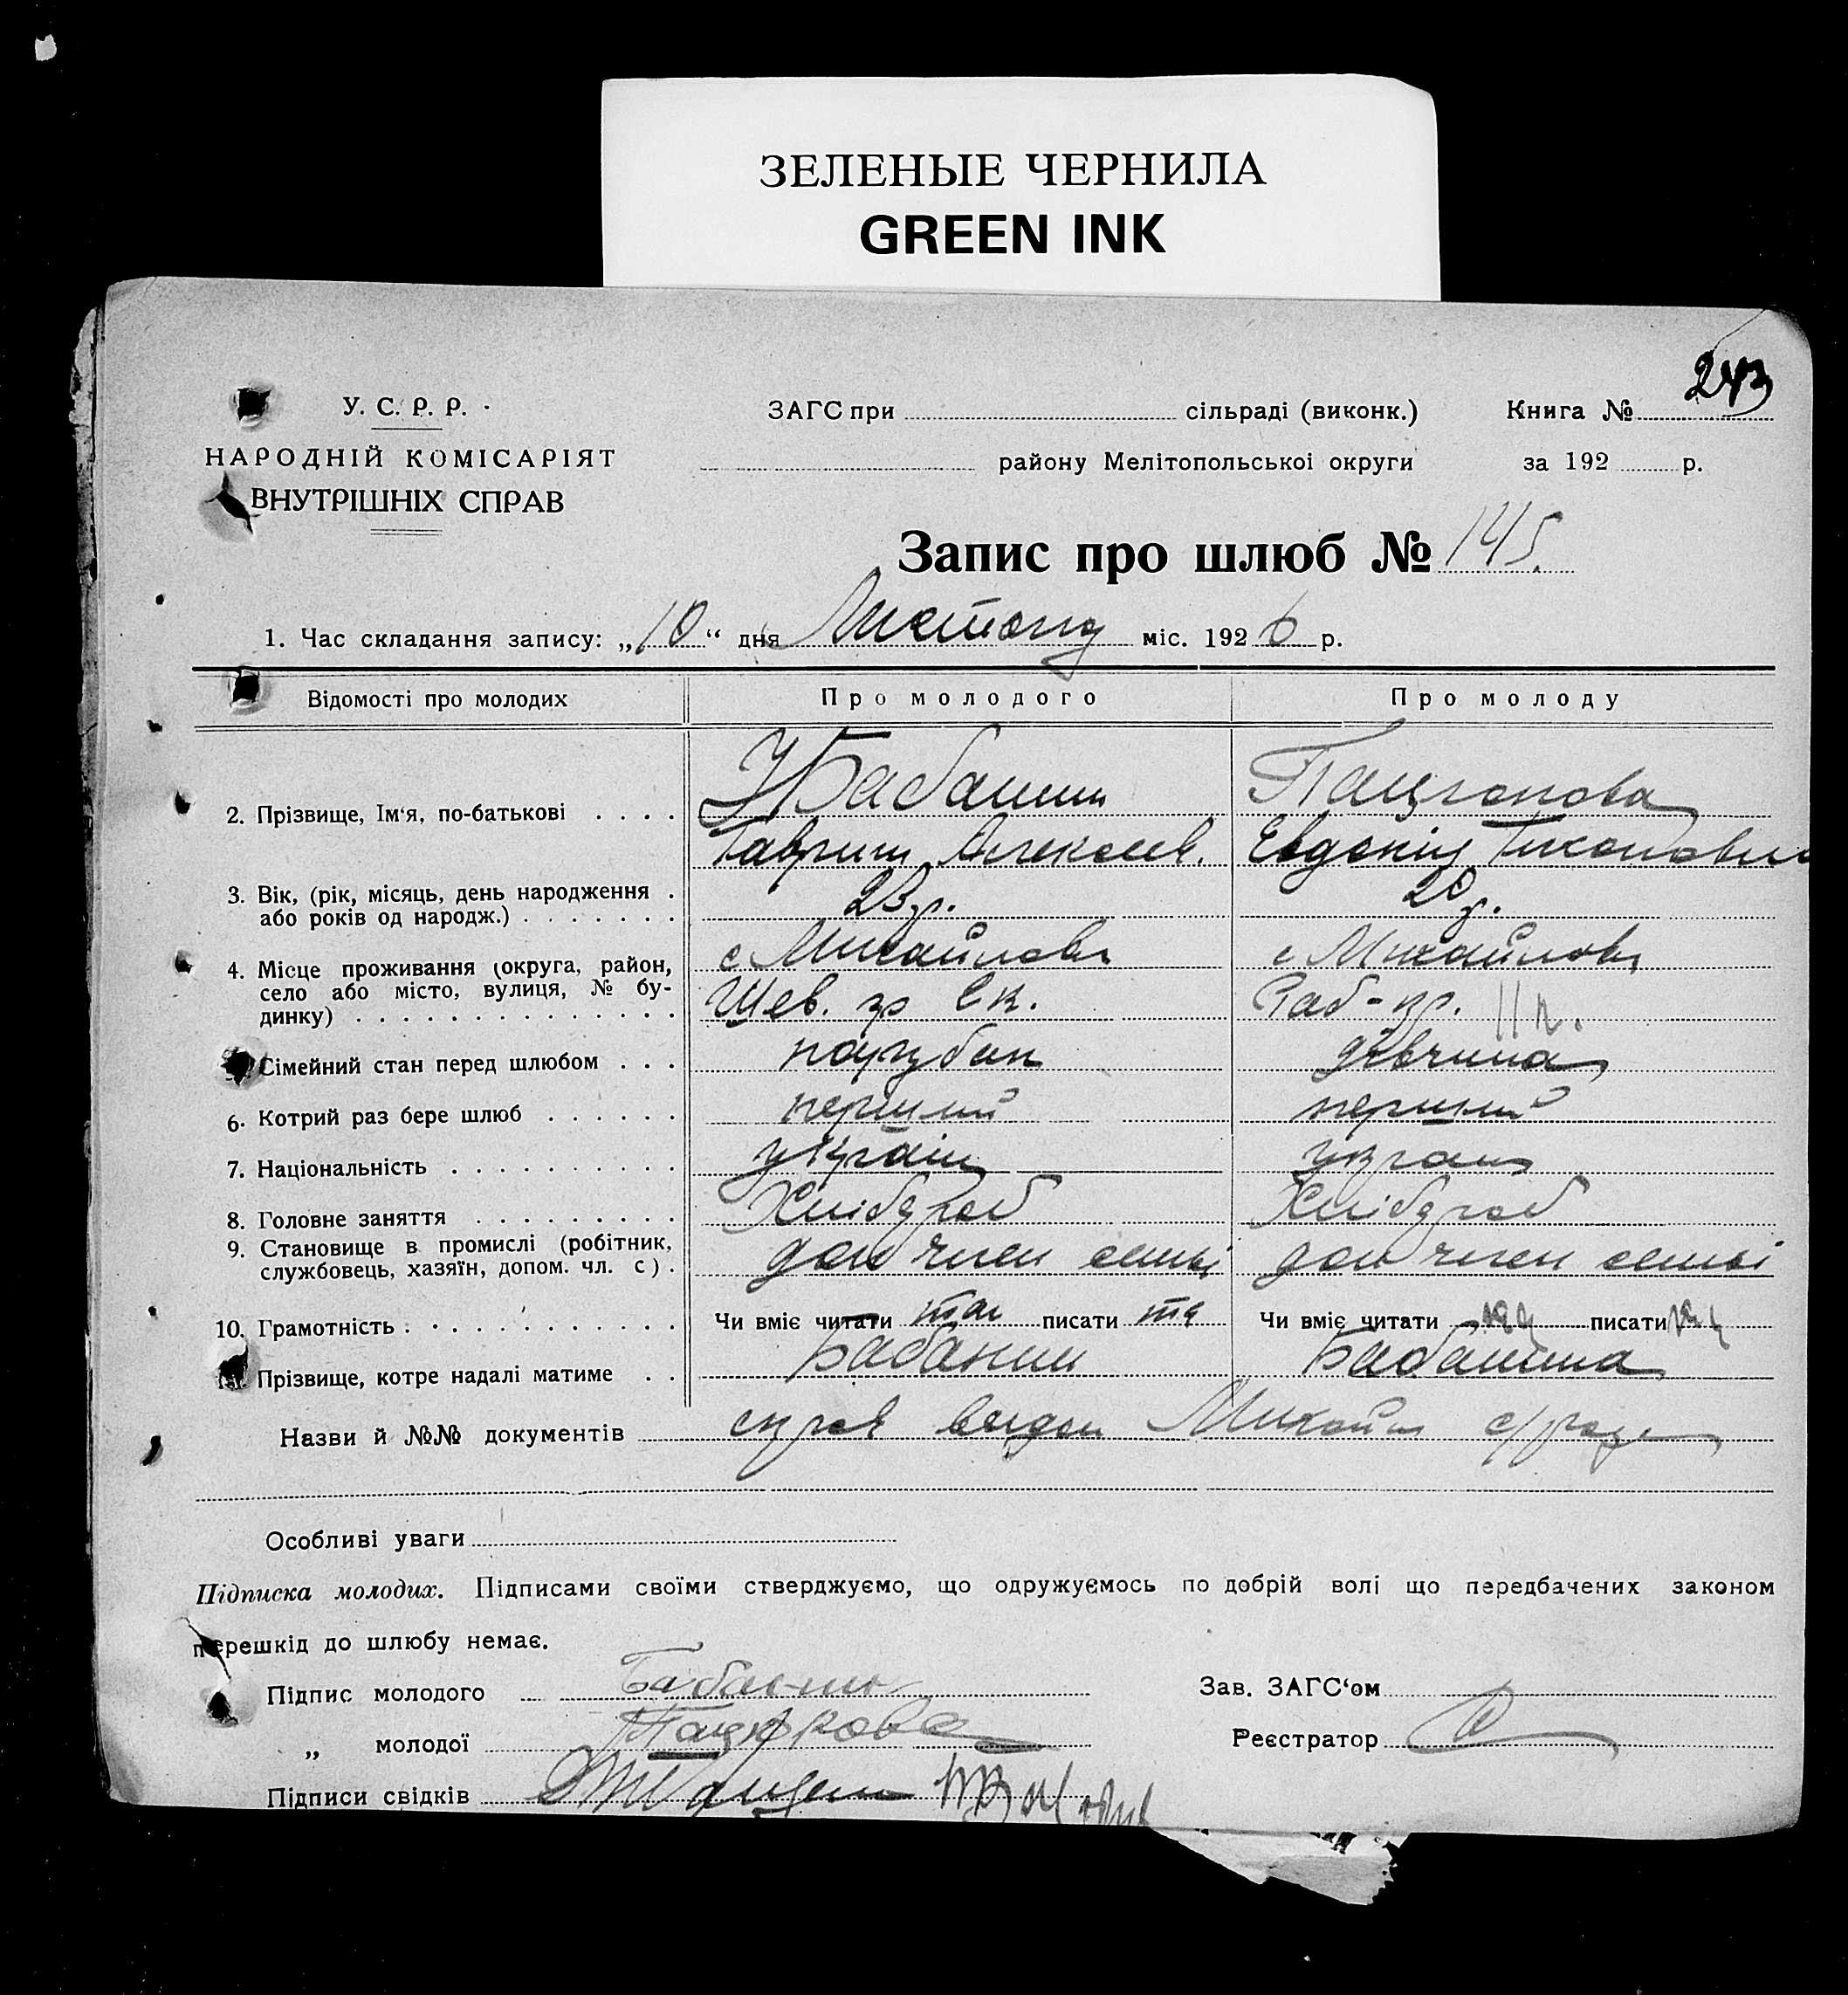 ЗЕЛЕНЫЕ ЧЕРНИЛА
GREEN INK
243
У. С. Р. Р.
НАРОДНІЙ КОМІСАРІЯТ
ВНУТРІШНІХ СПРАВ
ЗАГС при сільраді (виконк.)
району Мелітопольської округи
Книга №
за 192 р.
Запис про шлюб № 145.
1. Час складання запису: „10“ дня Листопад міс. 1926 р.
Відомості про молодих Про молодого Про молоду
2. Прізвище, Ім‘я, по-батькові . . . . Бабанин
Гаврил Алексеев. Евдокія
3. Вік, (рік, місяць, день народження .
або років од народж.) . . . . . . . 23 р. 20 р.
4. Місце проживання (округа, район,
село або місто, вулиця, № бу-
динку) . . . . . . . . . . . . . . с Михайловк с Михайловк
Шев. Раб-
Сімейний стан перед шлюбом . . . парубок дівчина
6. Котрий раз бере шлюб . . . . . . перший перший
7. Національність . . . . . . . . . . україн україн
8. Головне заняття . . . . . . . . . Хлібороб Хлібороб
9. Становище в промислі (робітник,
службовець, хазяїн, допом. чл. с) . доп член семьі доп член семьі
10. Грамотність . . . . . . . . . . . . Чи вміє читати так писати та Чи вміє читати писати
Прізвище, котре надалі матиме . . Бабанин Бабанина
Назви й №№ документів Михайл с/ради
Особливі уваги
Підписка молодих. Підписами своїми стверджуємо, що одружуємось по добрій волі що передбачених законом
перешкід до шлюбу немає.
Підпис молодого Бабанин
„ молодої
Зав. ЗАГС‘ом
Реєстратор
Підписи свідків